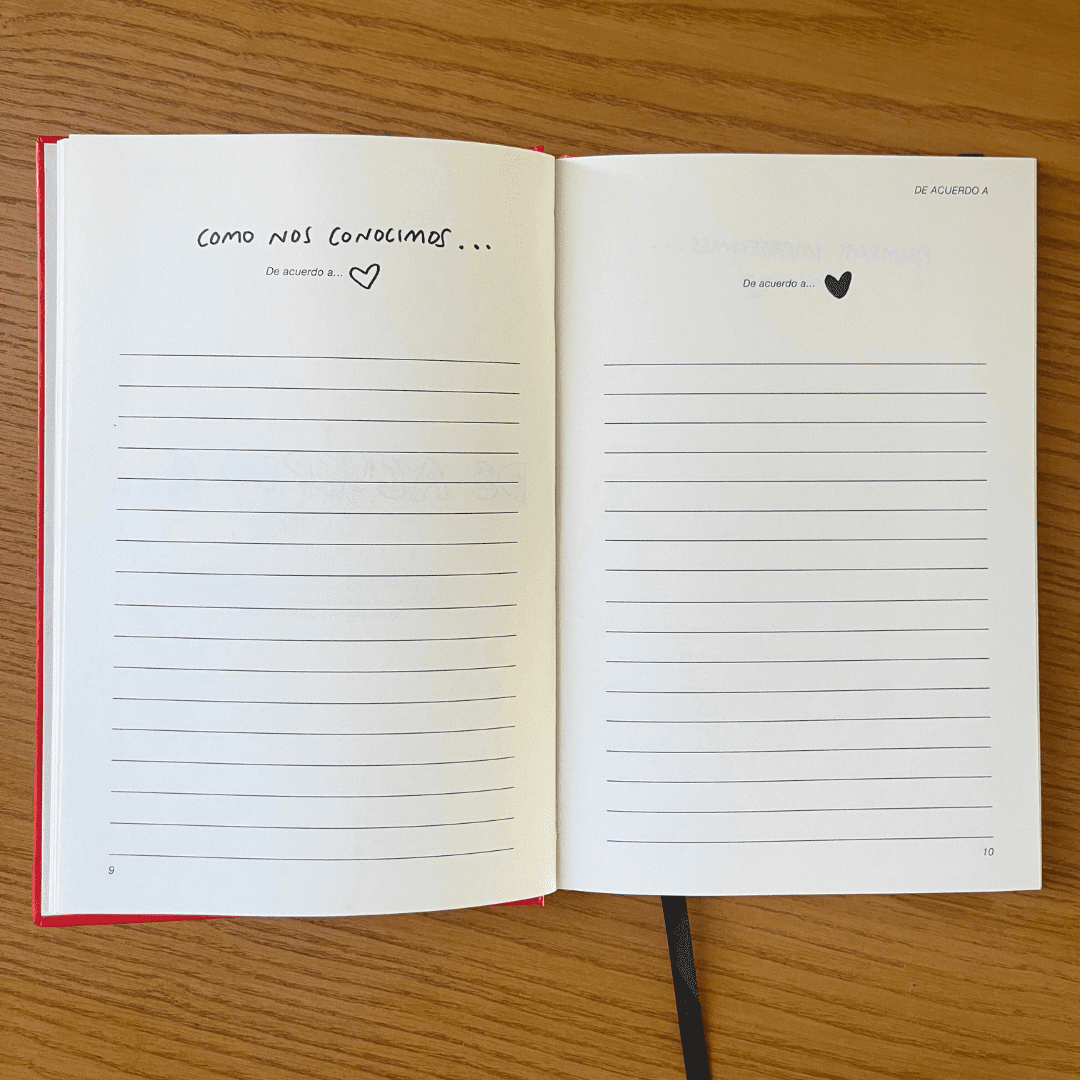 COMO NOS CONOCIMOS...
De acuerdo a...
9
DE ACUERDO A
De acuerdo a...
10